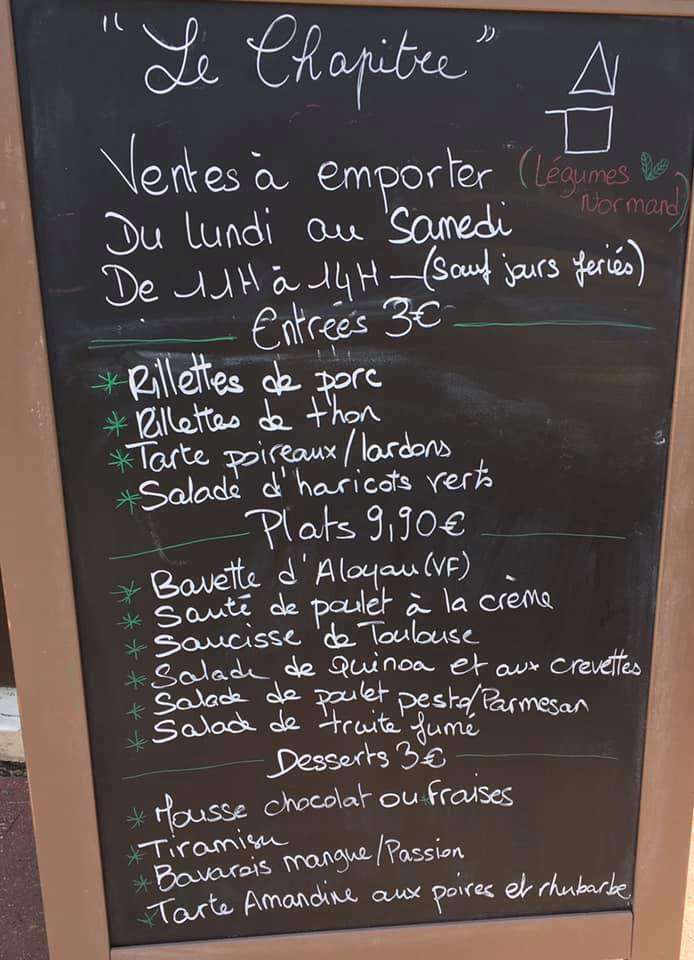 "Le Chapitre"
Ventes à emporter
(Légumes
Normand)
Du lundi au Samedi
De 11H à 14H -(Sauf jours feriés)
Entrées 3€
*Rillettes de porc
*Rillettes de thon
*Tarte poireaux/lardons
*Salade d'haricots verts
Plats 9,90€
* Bavette d'Aloyau (VF)
* Sauté de poulet à la crème
* Saucisse de Toulouse
* Salade de Quinoa et aux crevettes
* Salade de poulet pesto/Parmesan
* Salade de truite fumé
Desserts 3€
* Mousse chocolat ou fraises
*Tiramisu
*Bavarois mangue/Passion
*Tarte Amandine aux poires et rhubarbe